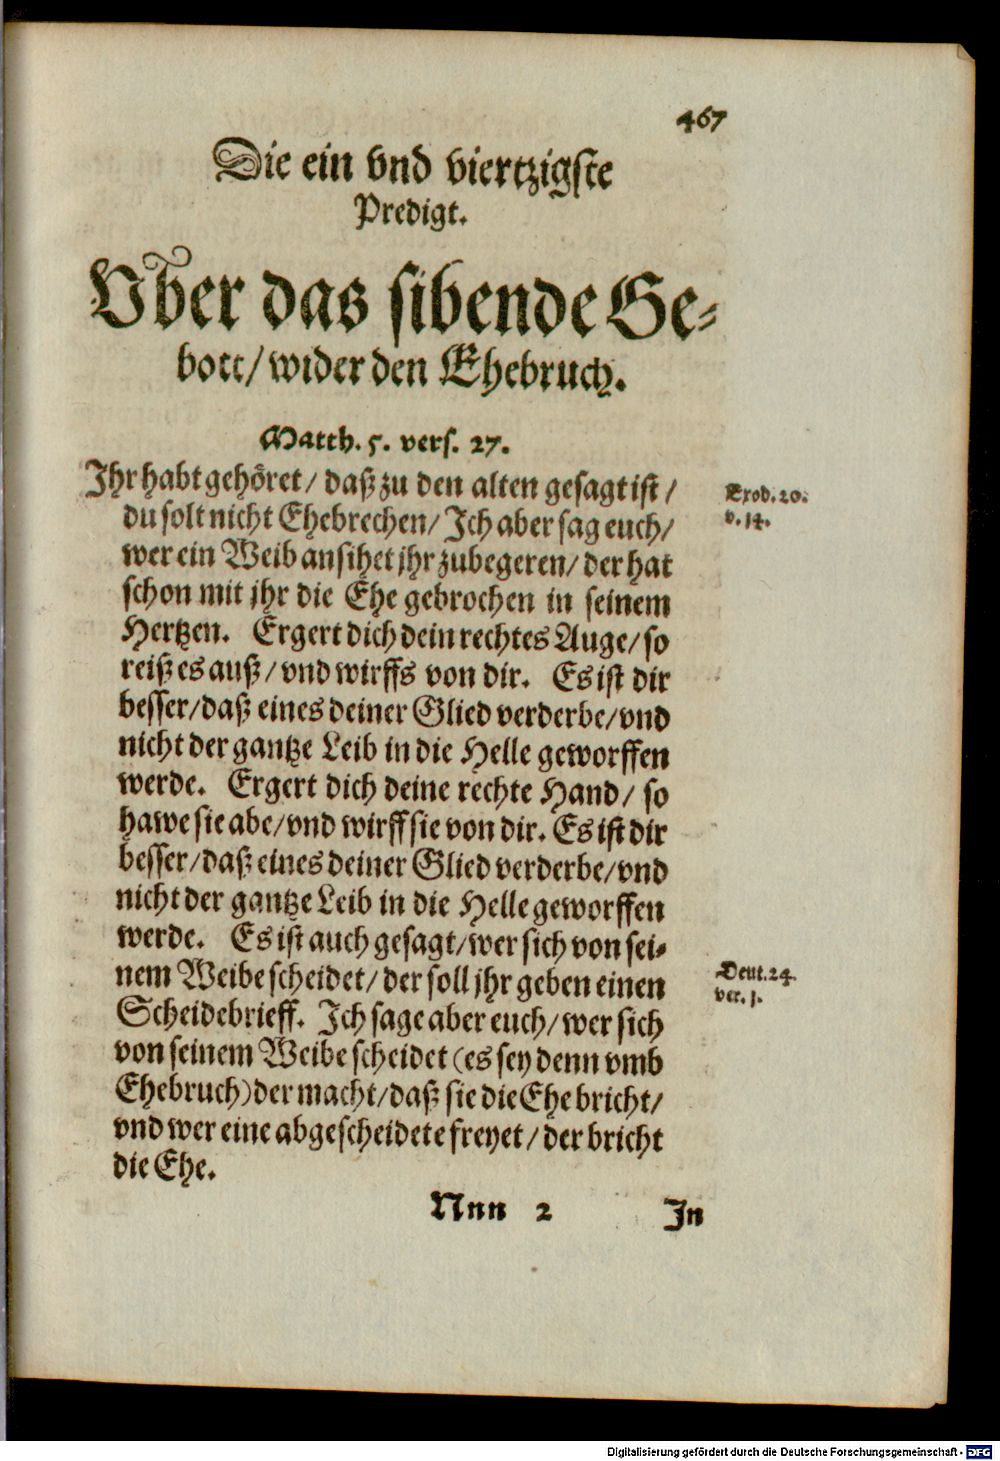 467
Die ein vnd viertzigste
Predigt.
Vber das sibende Ge-
bott/ wider den Ehebruch.
Matth. 5. vers. 27.
Ihr habt gehöret/ daß zu den alten gesagt ist/
du solt nicht Ehebrechen/ Ich aber sag euch/
wer ein Weib ansihet jhr zubegeren/ der hat
schon mit jhr die Ehe gebrochen in seinem
Hertzen. Ergert dich dein rechtes Auge/ so
reiß es auß/ vnd wirffs von dir. Es ist dir
besser/ daß eines deiner Glied verderbe/ vnd
nicht der gantze Leib in die Helle geworffen
werde. Ergert dich deine rechte Hand/ so
hawe sie abe/ vnd wirff sie von dir. Es ist dir
besser/ daß eines deiner Glied verderbe/ vnd
nicht der gantze Leib in die Helle geworffen
werde. Es ist auch gesagt/ wer sich von sei-
nem Weibe scheidet/ der soll jhr geben einen
Scheidebrieff. Ich sage aber euch/ wer sich
von seinem Weibe scheidet (es sey denn vmb
Ehebruch) der macht/ daß sie die Ehe bricht/
vnd wer eine abgescheidete freyet/ der bricht
die Ehe.
Exod. 20.
v. 14.
Deut. 24.
ver. 1.
Nnn 2 In
Digitalisierung gefördert durch die Deutsche Forschungsgemeinschaft - DFG